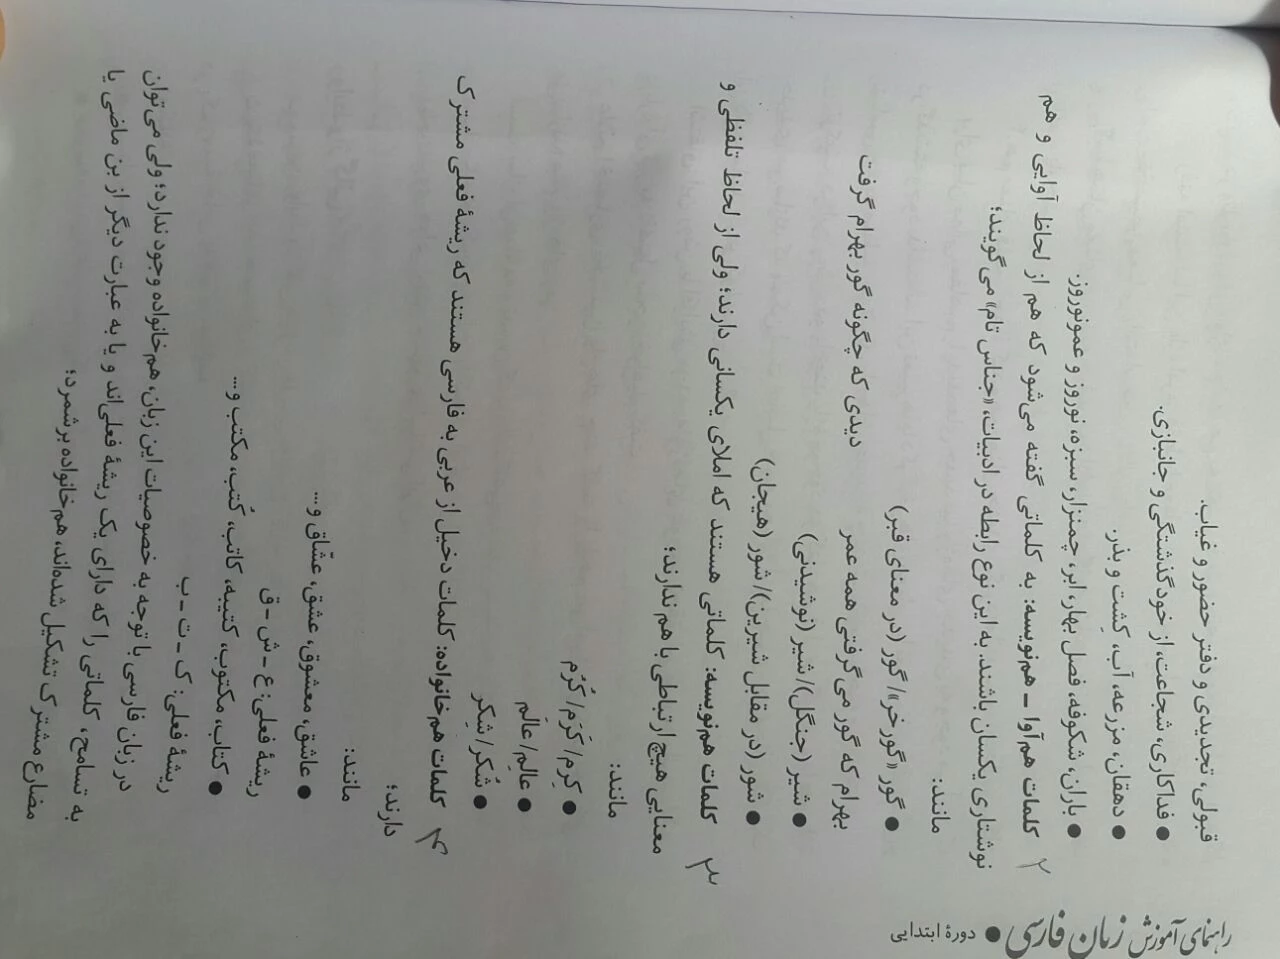 راهنمای آموزش زبان فارسی ● دورهٔ ابتدایی
قبولی، تجدیدی و دفتر حضور و غیاب.
● فداکاری، شجاعت، از خودگذشتگی و جانبازی.
● دهقان، مزرعه، آب، کِشت و بذر.
● باران، شکوفه، فصل بهار، ابر، چمنزار، سبزه، نوروز و عمونوروز.
۲ کلمات هم‌آوا ـ هم‌نویسه: به کلماتی گفته می‌شود که هم از لحاظ آوایی و هم
نوشتاری یکسان باشند. به این نوع رابطه در ادبیات، «جناس تام» می‌گویند؛
مانند:
● گور «گورخر»/ گور (در معنای قبر)
بهرام که گور می‌گرفتی همه عمر دیدی که چگونه گور بهرام گرفت
● شیر (جنگل)/ شیر (نوشیدنی)
● شور (در مقابل شیرین)/ شور (هیجان)
۳ کلمات هم‌نویسه: کلماتی هستند که املای یکسانی دارند؛ ولی از لحاظ تلفظی و
معنایی هیچ ارتباطی با هم ندارند؛
مانند:
● کِرِم/ کَرَم/ کُرُم
● عالِم/ عالَم
● شُکر/ شِکَر
۴ کلمات هم‌خانواده: کلمات دخیل از عربی به فارسی هستند که ریشهٔ فعلی مشترک
دارند؛
مانند:
● عاشق، معشوق، عشق، عشّاق و...
ریشهٔ فعلی: ع ـ ش ـ ق
● کتاب، مکتوب، کتیبه، کاتب، کُتب، مکتب و...
ریشهٔ فعلی: ک ـ ت ـ ب
در زبان فارسی با توجه به خصوصیات این زبان، هم‌خانواده وجود ندارد؛ ولی می‌توان
به تسامح، کلماتی را که دارای یک ریشهٔ فعلی‌اند و یا به عبارت دیگر از بن ماضی یا
مضارع مشترک تشکیل شده‌اند، هم‌خانواده برشمرد؛